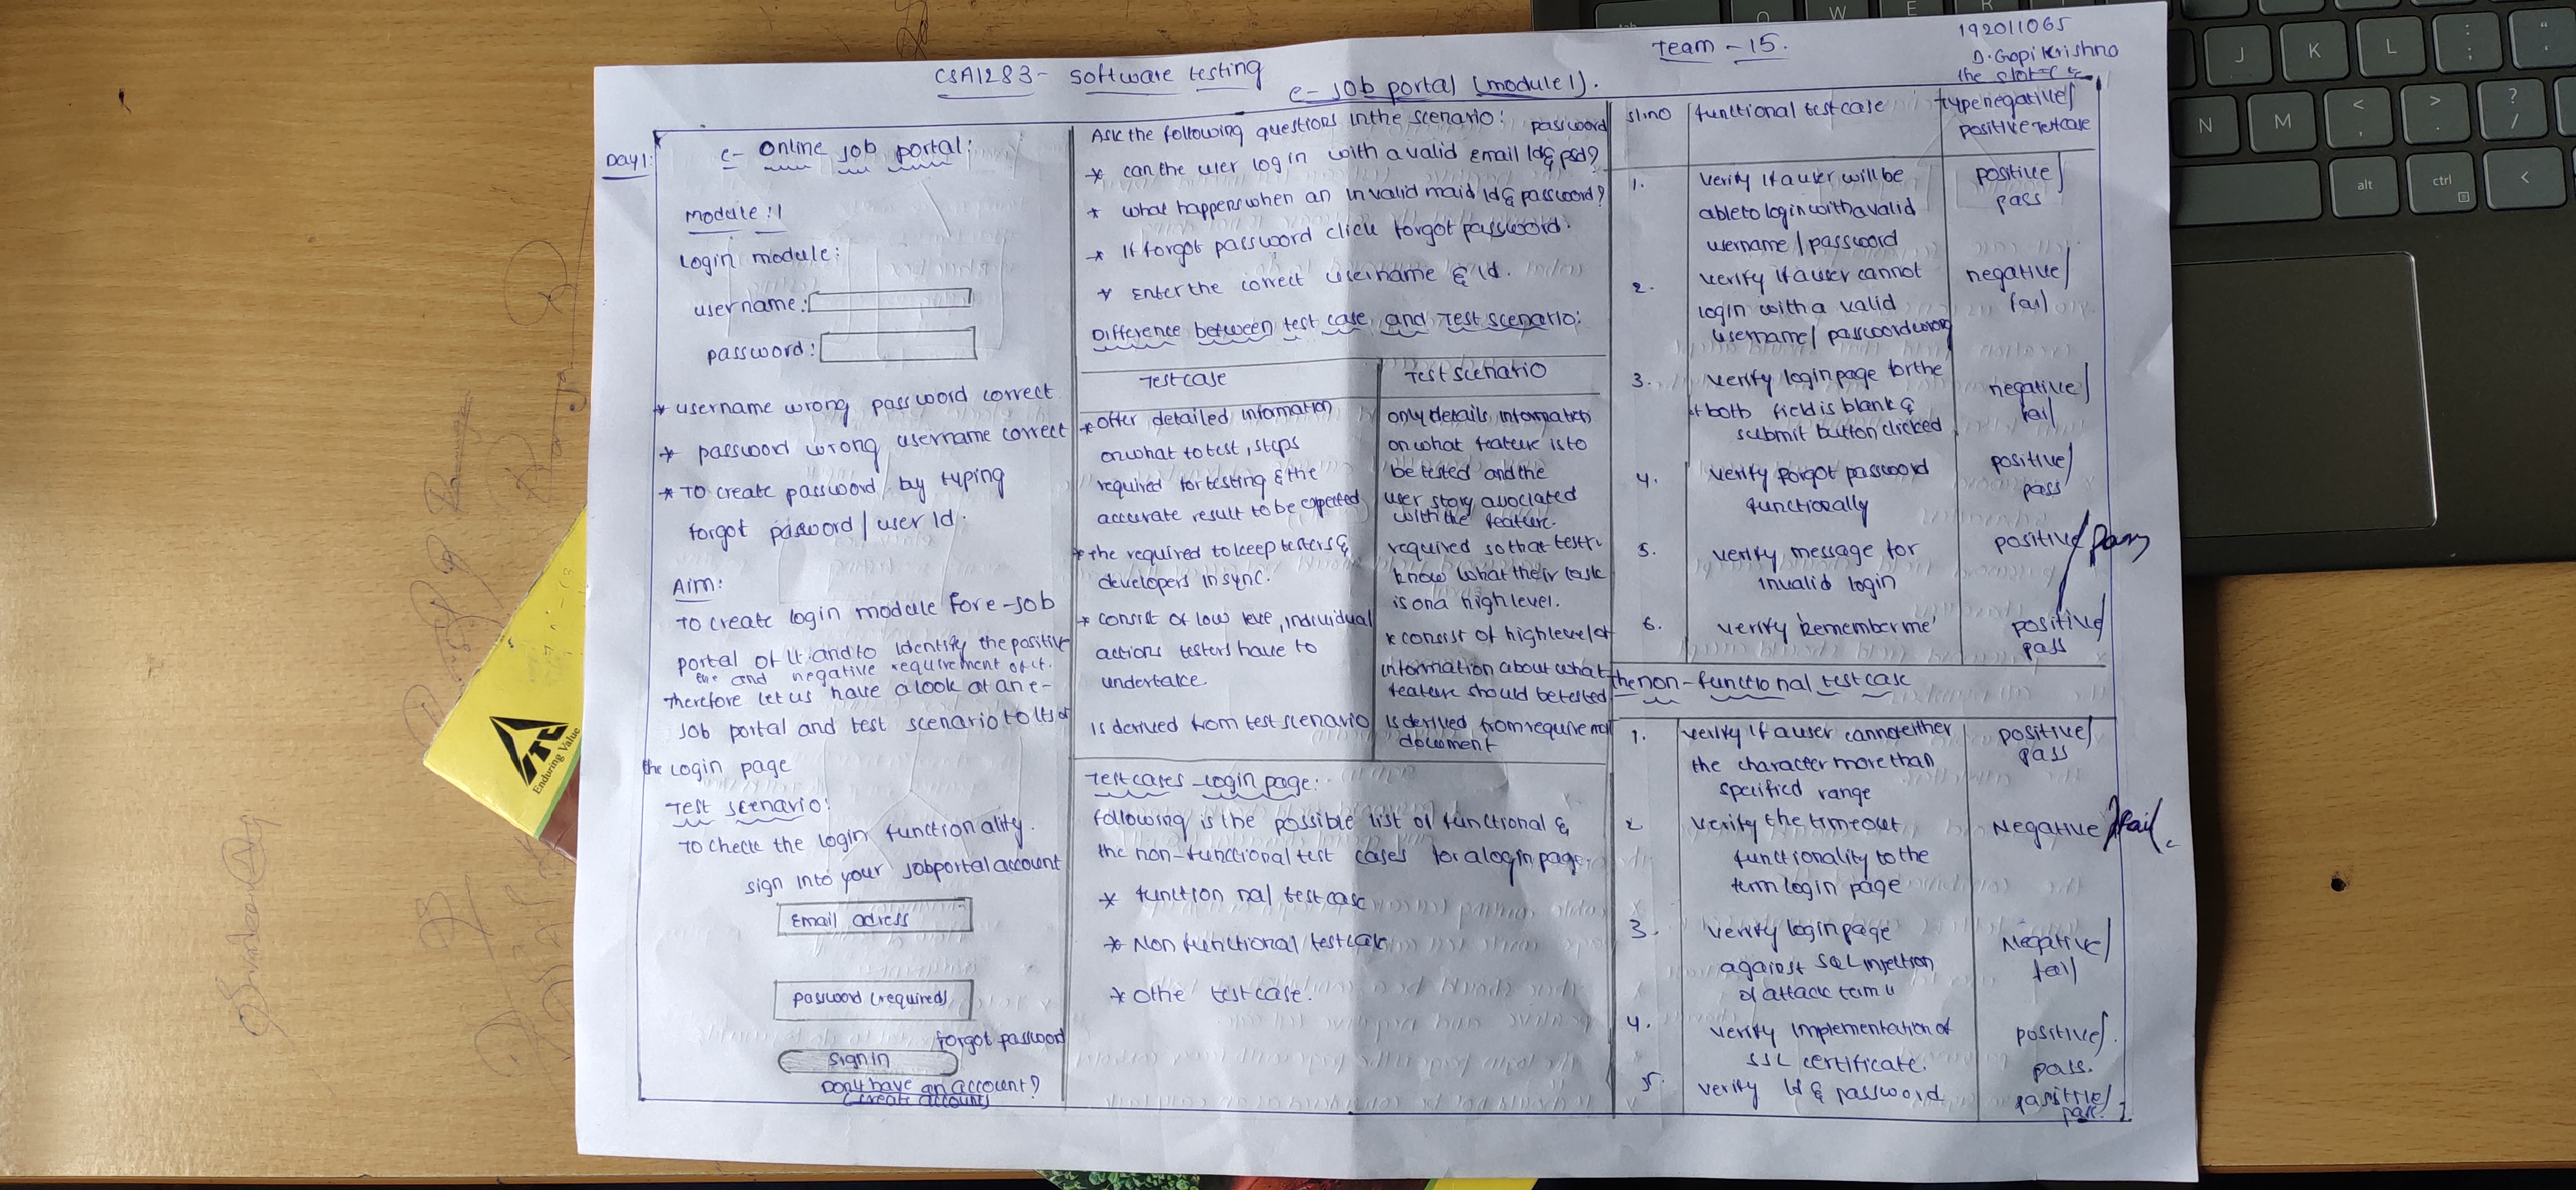 CSA1283 - Software testing
e - Job portal (module 1).
Team - 15.
192011065
D. Gopi Krishna
Day 1:
e - Online Job portal:
Module:1
Login module:
username:
password:
* username wrong password correct
* password wrong username correct
* To create password by typing
forgot password / user Id.
Aim:
To create login module for e-Job
portal of it and to identify the positive
and negative requirement of it.
therefore let us have a look at an e-
Job portal and test scenario to
the Login page
Test scenario:
To check the login functionality.
sign into your Jobportal account
Email adress
password (required)
forgot password
sign in
Don't have an account?
(create account)
Ask the following questions in the scenario:
* can the user log in with a valid email Id & psd?
password
* what happens when an invalid maid id & password?
* If forgot password click forgot password.
* Enter the correct username & Id.
Difference between test case and Test scenario:
Test case
Test scenario
* offer detailed information
on what to test, steps
required for testing & the
accurate result to be expected
* the required to keep testers &
developers in sync.
* consist of low leve, individual
actions testers have to
undertake
Is derived from test scenario
only details information
on what feature is to
be tested and the
user story associated
with the feature.
required so that testr
know what their task
is on a high level.
* consist of high level of
information about what
feature should be tested
Is derived from requirement
document
Test cases - login page:
following is the possible list of functional &
the non - functional test cases for a login page.
* function nal test case
* Non functional test case
* Othe test case.
sl.no
functional test case
type negative/
positive testcase
1.
verify if a user will be
able to login with a valid
username / password
positive/
pass
2.
verify if a user cannot
login with a valid
username/ password wrong
negative/
fail
3.
verify login page for the
both field is blank &
submit button clicked
negative/
fail
4.
verify forgot password
functionally
positive/
pass
5.
verify message for
invalid login
positive/pass
6.
verify 'Remember me'
positive/
pass
the non - functional test case
1.
verify if a user cannot either
the character more than
specified range
positive/
pass
2
verify the timeout
functionality to the
turn login page
Negative/fail.
3.
verify login page
against SQL injection
Negative/
fail
4.
verify implementation of
SSL certificate.
positive/
pass.
5.
verify Id & password
positive/
pass.
ITC
Enduring Value
W
E
R
N
J
M
K
L
alt
ctrl